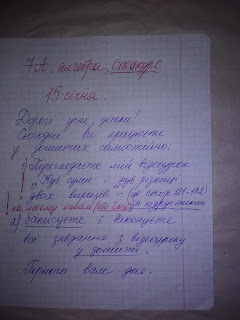 7А, алгебра, спецкурс
15 січня.
Дорогі діти, дітки!
Сьогодні ви працюєте
у зошитах самостійно:
1) Переглядаєте мій відеоурок
"Куб суми і куб різниці
двох виразів – (це стор 121-122
за підручником
на моєму каналі
2) Записуєте і виконуєте
всі завдання з відеоуроку
у зошиті.
Гарного вам дня.